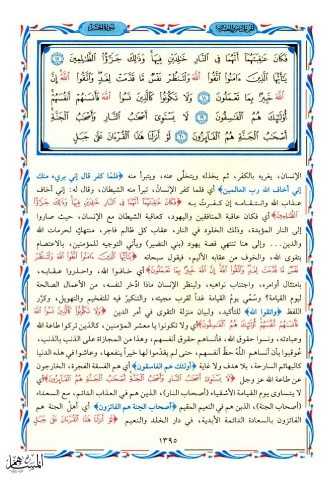 سورة الحشر
فَكَانَ عَاقِبَتَهُمَا أَنَّهُمَا فِي النَّارِ خَالِدَيْنِ فِيهَا وَذَٰلِكَ جَزَاءُ الظَّالِمِينَ ١٧
يَا أَيُّهَا الَّذِينَ آمَنُوا اتَّقُوا اللَّهَ وَلْتَنظُرْ نَفْسٌ مَّا قَدَّمَتْ لِغَدٍ وَاتَّقُوا اللَّهَ إِنَّ
اللَّهَ خَبِيرٌ بِمَا تَعْمَلُونَ ١٨ وَلَا تَكُونُوا كَالَّذِينَ نَسُوا اللَّهَ فَأَنسَاهُمْ أَنفُسَهُمْ
أُولَٰئِكَ هُمُ الْفَاسِقُونَ ١٩ لَا يَسْتَوِي أَصْحَابُ النَّارِ وَأَصْحَابُ الْجَنَّةِ
أَصْحَابُ الْجَنَّةِ هُمُ الْفَائِزُونَ ٢٠ لَوْ أَنزَلْنَا هَٰذَا الْقُرْآنَ عَلَىٰ جَبَلٍ
الإنسان، يغريه بالكفر، ثم يخذله ويتخلَّى عنه، ويتبرأ منه ﴿فلما كفر قال إني بريء منك
إني أخاف الله رب العالمين﴾ أي فلما كفر الإنسانُ، تبرأ منه الشيطان، وقال له: إني أخاف
عذاب الله وانتقامه إن كفرتُ به ﴿فَكَانَ عَاقِبَتَهُمَا أَنَّهُمَا فِي النَّارِ خَالِدَيْنِ فِيهَا وَذَٰلِكَ جَزَاءُ
الظَّالِمِينَ﴾ أي فكان عاقبة المنافقين واليهود، كعاقبة الشيطان مع الإنسان، حيث صاروا
إلى النار المؤبدة، وذلك الخلود في النار، عقاب كل ظالم فاجر، منتهكٍ لحرمات الله
والدين... وإلى هنا تنتهي قصة يهود (بني النضير) ويأتي التوجيه للمؤمنين، بالاعتصام
بتقوى الله، والخوف من عقابه الأليم، فيقول سبحانه ﴿يَا أَيُّهَا الَّذِينَ آمَنُوا اتَّقُوا اللَّهَ وَلْتَنظُرْ
نَفْسٌ مَّا قَدَّمَتْ لِغَدٍ وَاتَّقُوا اللَّهَ إِنَّ اللَّهَ خَبِيرٌ بِمَا تَعْمَلُونَ﴾ أي خافوا الله، واحذروا عقابه،
بامتثال أوامره، واجتناب نواهيه، ولينظر الإنسان ماذا ادَّخر لنفسه، من الأعمال الصالحة
ليوم القيامة؟ وسُمّي يومُ القيامة غداً لقرب مجيئه، والتنكيرُ فيه للتفخيم والتهويل، وكرَّر
اللفظ ﴿واتقوا الله﴾ للتأكيد، ولبيان منزلة التقوى في أمر الدين ﴿وَلَا تَكُونُوا كَالَّذِينَ نَسُوا اللَّهَ
فَأَنسَاهُمْ أَنفُسَهُمْ أُولَٰئِكَ هُمُ الْفَاسِقُونَ﴾ أي ولا تكونوا يا معشر المؤمنين، كالذين تركوا طاعة الله
وعبادته، ونسوا حقوق الله، فأنساهم حقوق أنفسهم، وهذا من المجازاة على الذنب بالذنب،
عُوقبوا بأن أنساهم اللَّهُ حظَّ أنفسهم، حتى لم يقدموا لها خيراً ينفعها، وعاشوا في هذه الدنيا
كالبهائم السارحة، بلا هدف ولا غاية ﴿أولئك هم الفاسقون﴾ أي هم الفسقة الفجرة، الخارجون
عن طاعة الله عز وجل ﴿لَا يَسْتَوِي أَصْحَابُ النَّارِ وَأَصْحَابُ الْجَنَّةِ أَصْحَابُ الْجَنَّةِ هُمُ الْفَائِزُونَ﴾ أي
لا يتساوى يوم القيامة الأشقياء (أصحاب النار)، الذين هم في العذاب الدائم، مع السعداء
(أصحاب الجنة)، الذين هم في النعيم المقيم ﴿أصحاب الجنة هم الفائزون﴾ أي أهلُ الجنة هم
الفائزون بالسعادة الدائمة الأبدية، في دار الخلد والنعيم ﴿لَوْ أَنزَلْنَا هَٰذَا الْقُرْآنَ عَلَىٰ جَبَلٍ
١٣٩٥